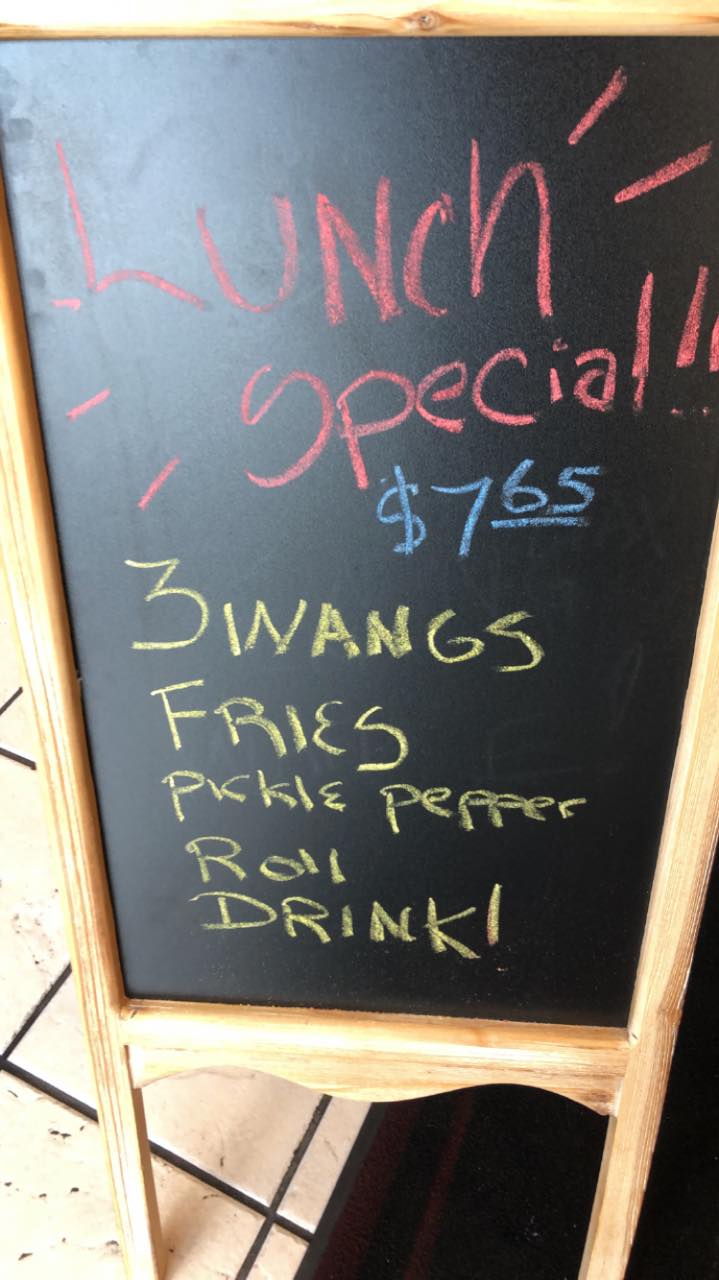 Lunch
Special!!!
$7 65
3 WANGS
FRIES
Pickle pepper
Roll
DRINK!